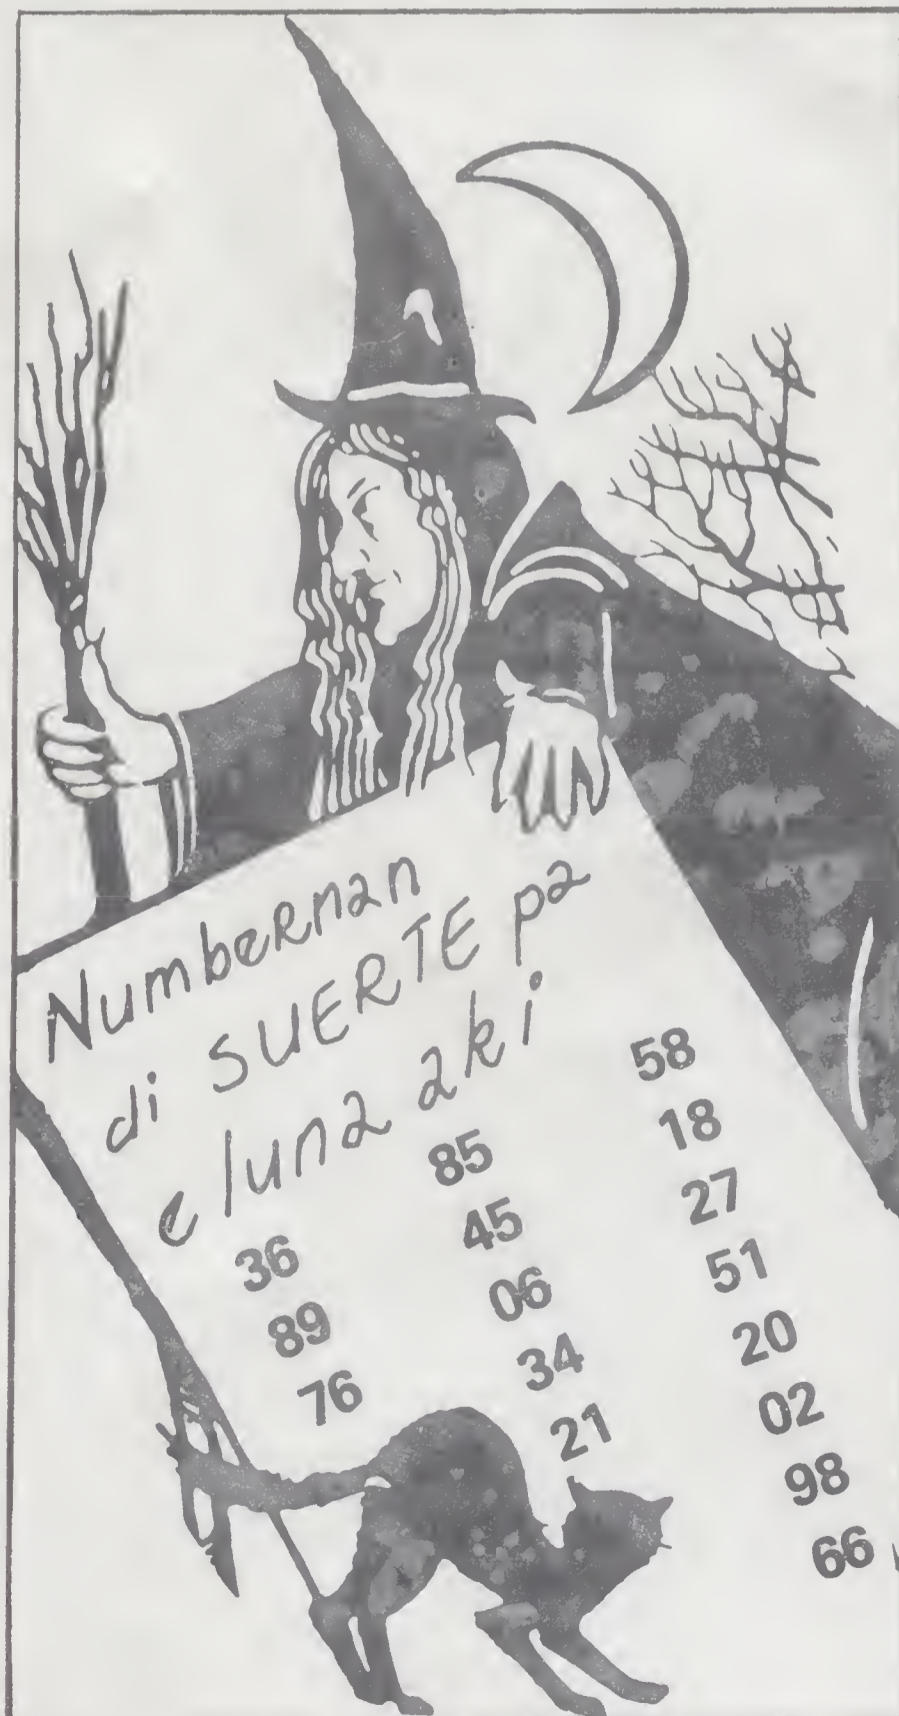 Numbernan
di SUERTE pa
e luna aki
36
89
76
85
45
06
34
21
58
18
27
51
20
02
98
66